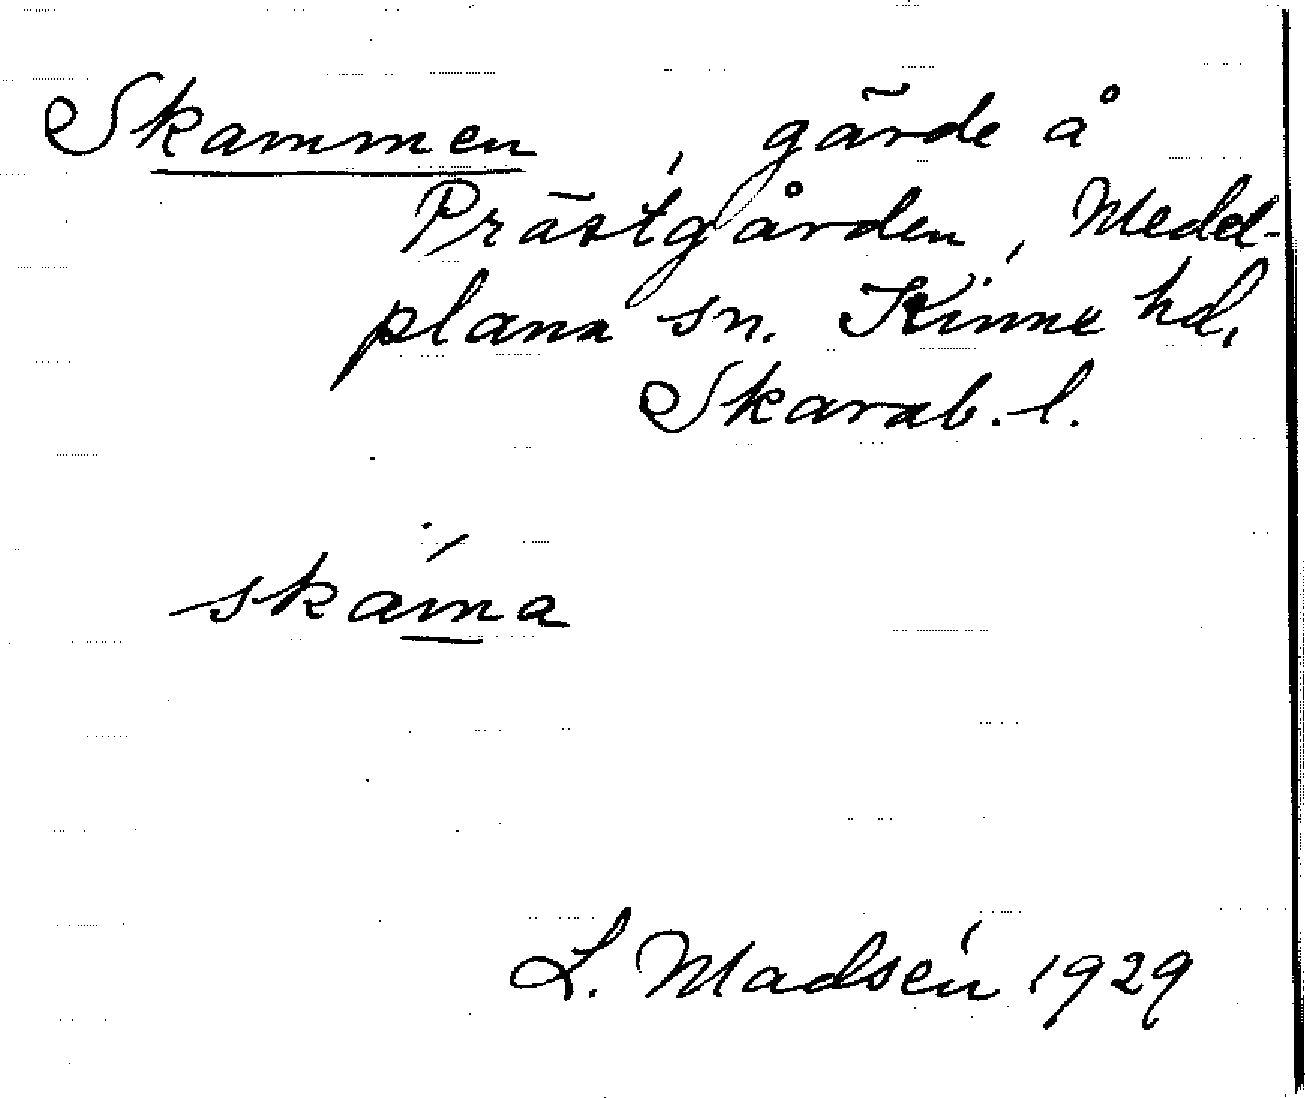 Skammen, gärde å
Prästgården, Medel-
plana sn. Kinne hd,
Skarab. l.
skáma
L. Madsén 1929